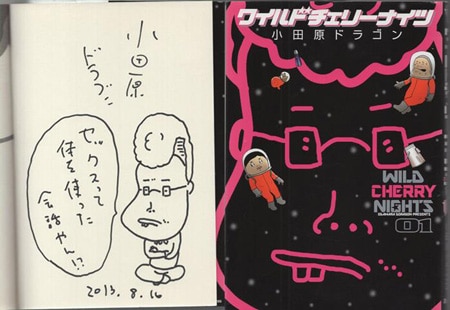 小田原
ドラゴン
セックスって
体を使った
会話やん!?
2013.8.16
ワイルドチェリーナイツ
小田原ドラゴン
WILD
CHERRY
NIGHTS
ODAWARA DORAGON PRESENTS
01